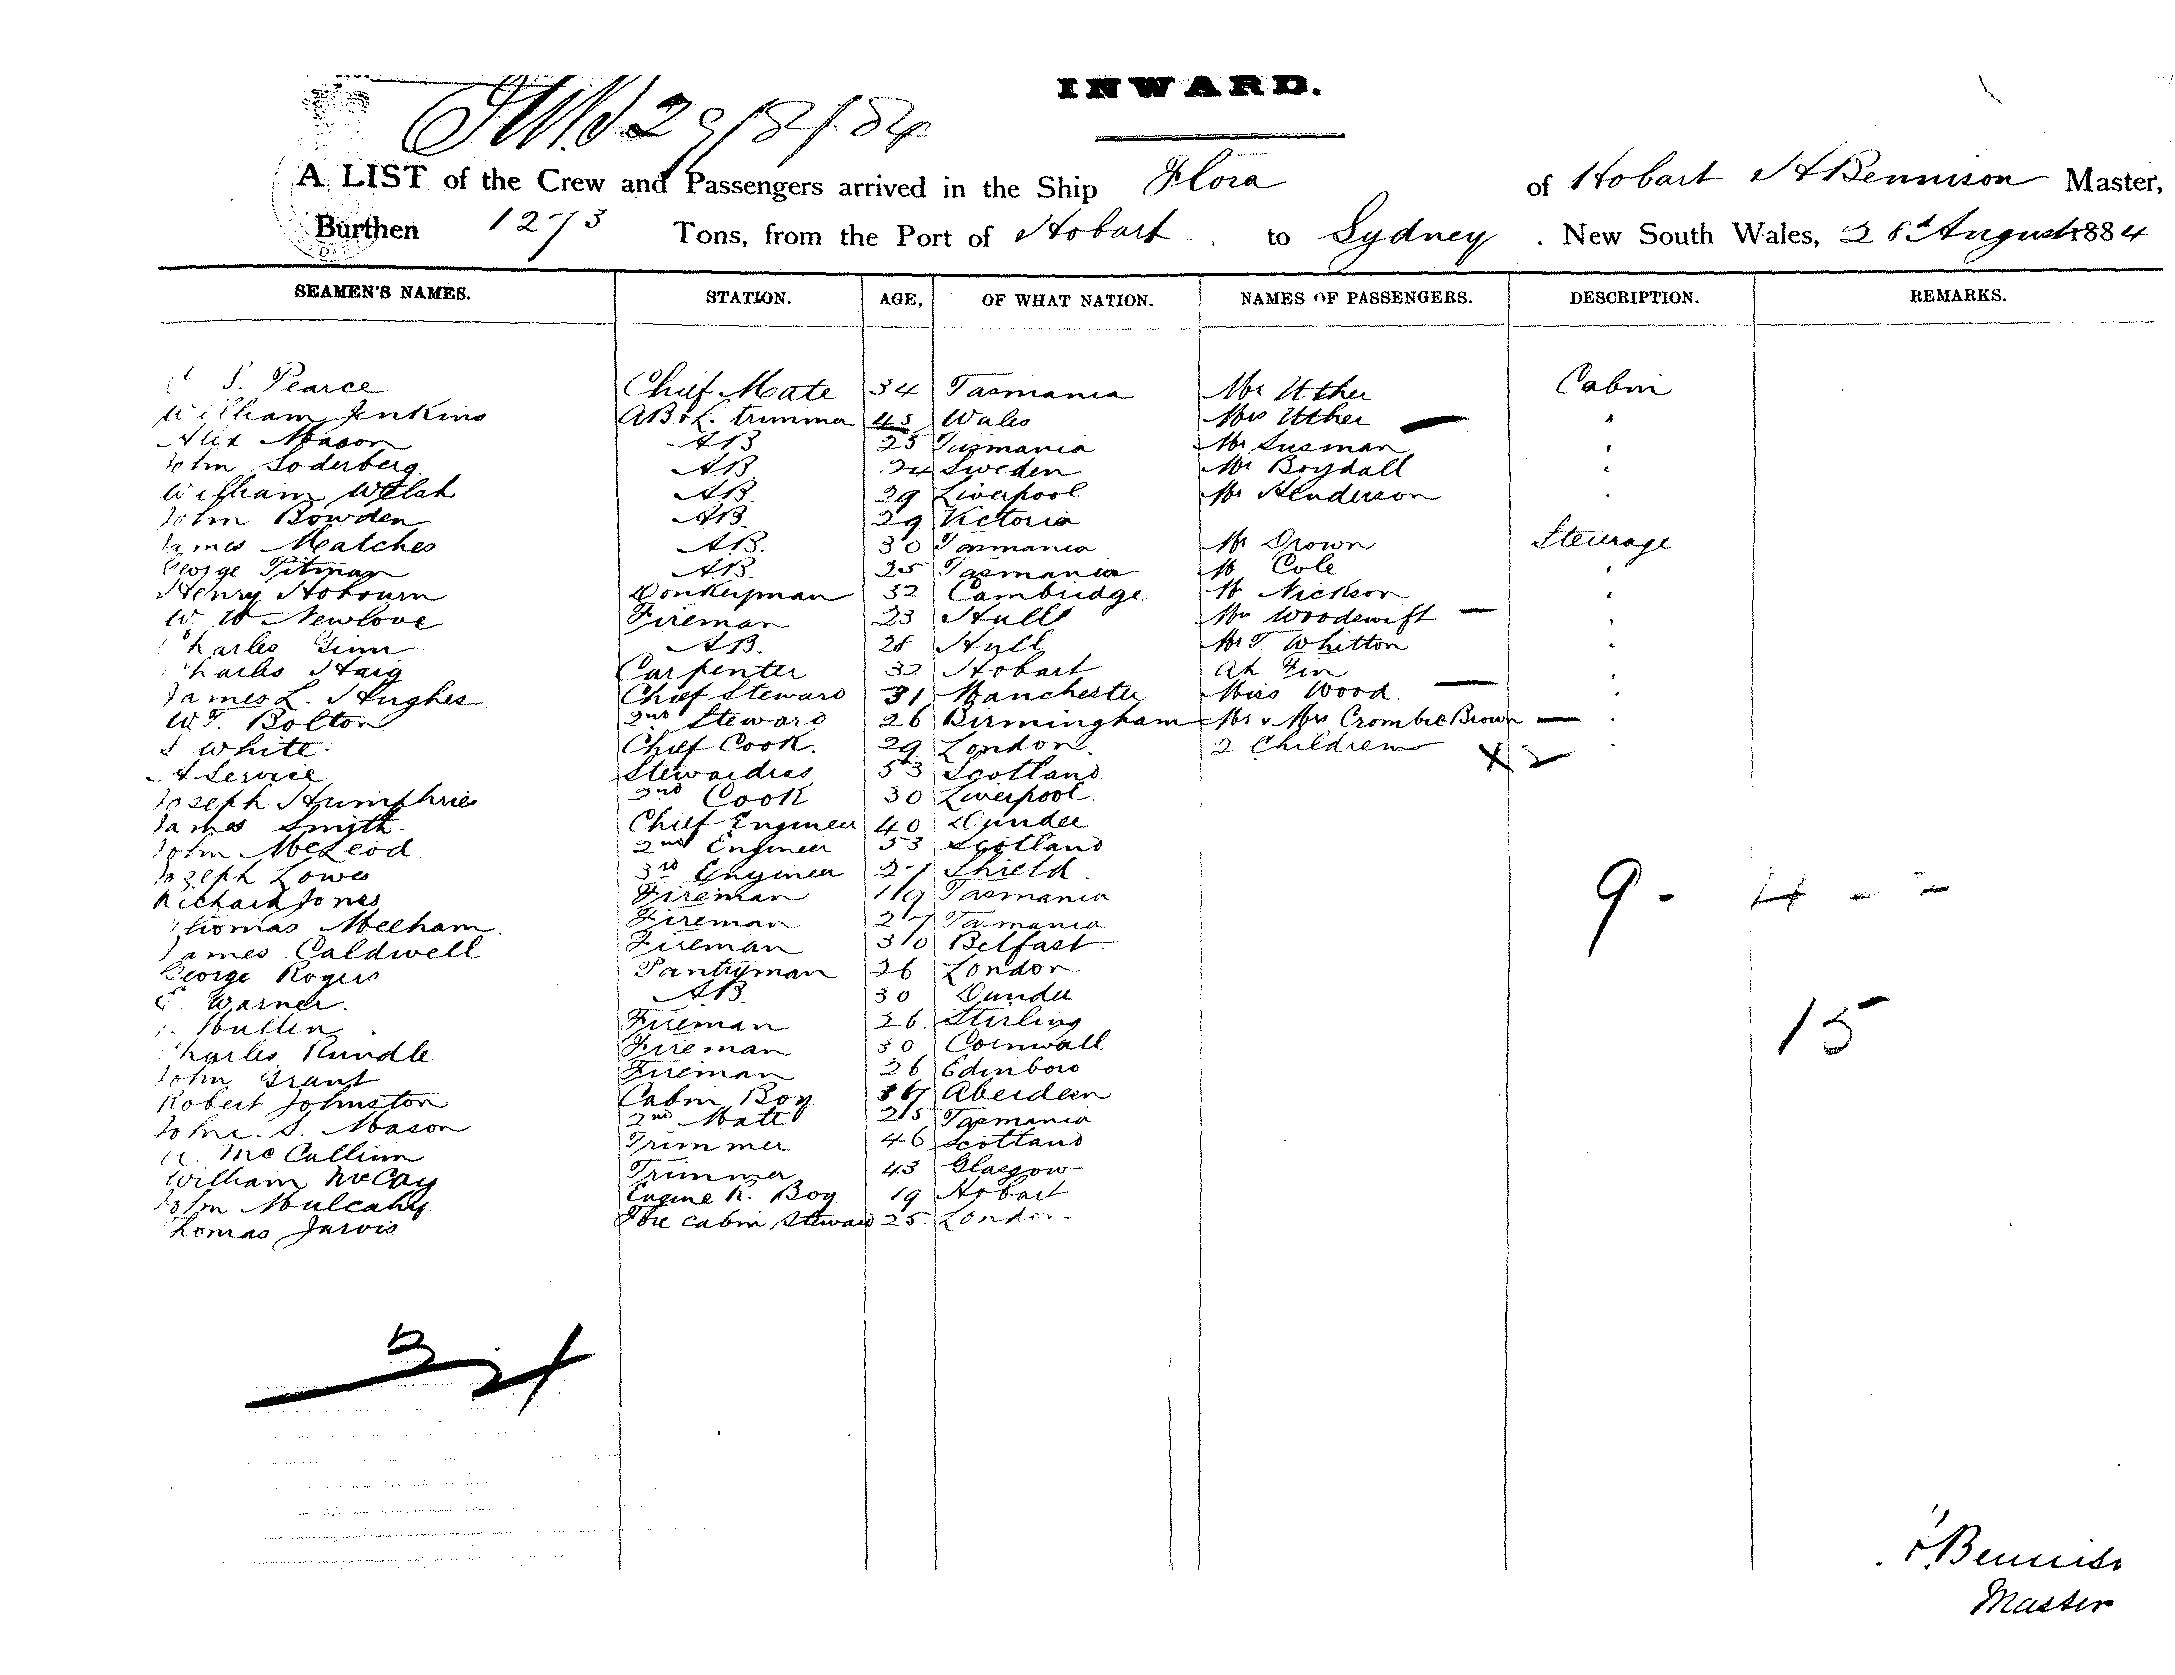 INWARD.
29/8/84
A LIST of the Crew and Passengers arrived in the Ship Flora of Hobart H Bennison Master,
Burthen 1273 Tons, from the Port of Hobart to Sydney. New South Wales, August 1884
SEAMEN'S NAMES. STATION. AGE, OF WHAT NATION. NAMES OF PASSENGERS. DESCRIPTION. REMARKS.
S. Pearce Chief Mate 34 Tasmania Mr Uther Cabin
William Jenkins AB & L. trimmer 43 Wales Mrs Uther — "
Alex Mason AB 25 Tasmania Mr Susman "
John Soderberg AB 24 Sweden Mr Boydall "
William Welsh AB 29 Liverpool Mr Henderson "
John Bowden AB 29 Victoria
James Meatches AB. 30 Tasmania Mr Brown Steerage
George Pitman AB 25 Tasmania Mr Cole "
Henry Hobourn Donkeyman 32 Cambridge Mr Nickson "
W. W Newlove Fireman 23 Hull Mr Woodswift — "
Charles Ginn AB. 28 Hull Mr T. Whitton "
Charles Haig Carpenter 32 Hobart Ah Fin "
James L. Hughes Chief Steward 31 Manchester Miss Wood. — "
W. T. Bolton 2nd Steward 26 Birmingham Mr & Mrs Crombie Brown — "
White. Chief Cook. 29 London. 2 Children x2 "
Service Stewardess 53 Scotland
Joseph Humphries 2nd Cook 30 Liverpool.
James Smith. Chief Engineer 40 Dundee
John McLeod 2nd Engineer 53 Scotland
Joseph Lowes 3rd Engineer 27 Shield.
Richard Jones Fireman 19 Tasmania 9 - 4 - -
Thomas Meeham. Fireman 27 Tasmania
James Caldwell Fireman 30 Belfast
George Rogers Pantryman 26 London
Warner. AB 30 Dundee
Hullin Fireman 26 Stirling 15
Charles Rundle Fireman 30 Cornwall
John Grant Fireman 26 Edinboro
Robert Johnston Cabin Boy Aberdeen
John. S. Mason 2nd Mate 25 Tasmania
McCallum Trimmer 46 Scotland
William McCay Trimmer 43 Glasgow
John Mulcahy Engine R. Boy 19 Hobart
Thomas Jarvis Fore Cabin Steward 25 London
34
H Bennison
Master